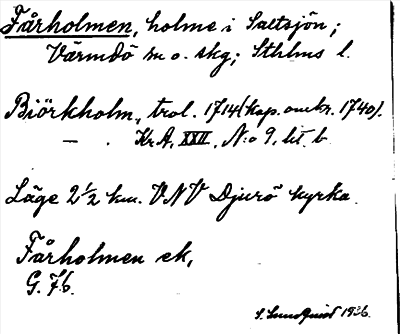 Fårholmen, holme i Saltsjön;
Värmdö sn o. skg; Sthlms l.
Biörkholm, trol. 1714 (kop. omkr. 1740).
— . Kr. A, XXII, N:o 9, lit. b.
Läge 2½ km. VNV Djurö kyrka.
Fårholmen ek,
G. 76.
S. Lundquist 1936